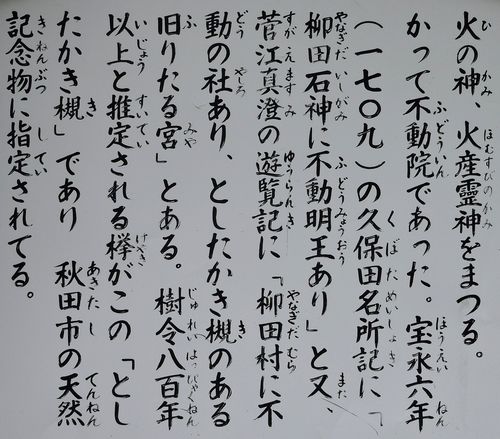 火の神、火産霊神をまつる。
かって不動院であった。宝永六年
(一七〇九)の久保田名所記に「
柳田石神に不動明王あり」と又、
菅江真澄の遊覧記に「柳田村に不
動の社あり、としたかき槻のある
旧りたる宮」とある。樹令八百年
以上と推定される欅がこの「とし
たかき槻」であり 秋田市の天然
記念物に指定されてる。